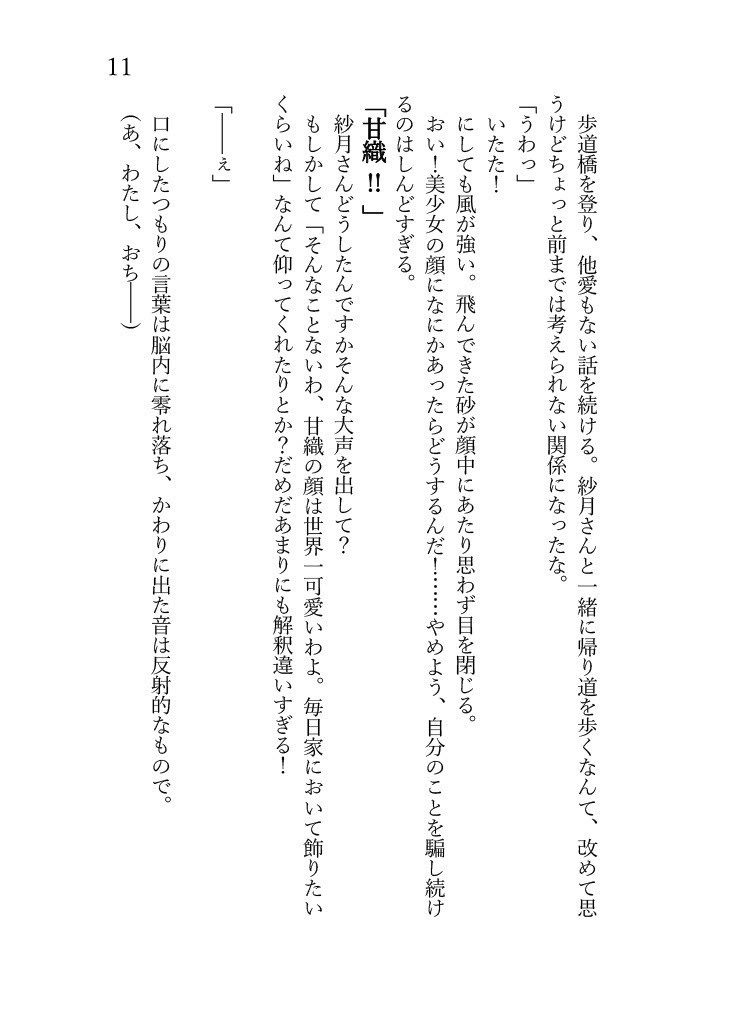 11
歩道橋を登り、他愛もない話を続ける。紗月さんと一緒に帰り道を歩くなんて、改めて思
うけどちょっと前までは考えられない関係になったな。
「うわっ」
いたた！
にしても風が強い。飛んできた砂が顔中にあたり思わず目を閉じる。
おい！美少女の顔になにかあったらどうするんだ！……やめよう、自分のことを騙し続け
るのはしんどすぎる。
「甘織‼」
紗月さんどうしたんですかそんな大声を出して？
もしかして「そんなことないわ、甘織の顔は世界一可愛いわよ。毎日家において飾りたい
くらいね」なんて仰ってくれたりとか？だめだあまりにも解釈違いすぎる！
「――ぇ」
口にしたつもりの言葉は脳内に零れ落ち、かわりに出た音は反射的なもので。
（あ、わたし、おち――）